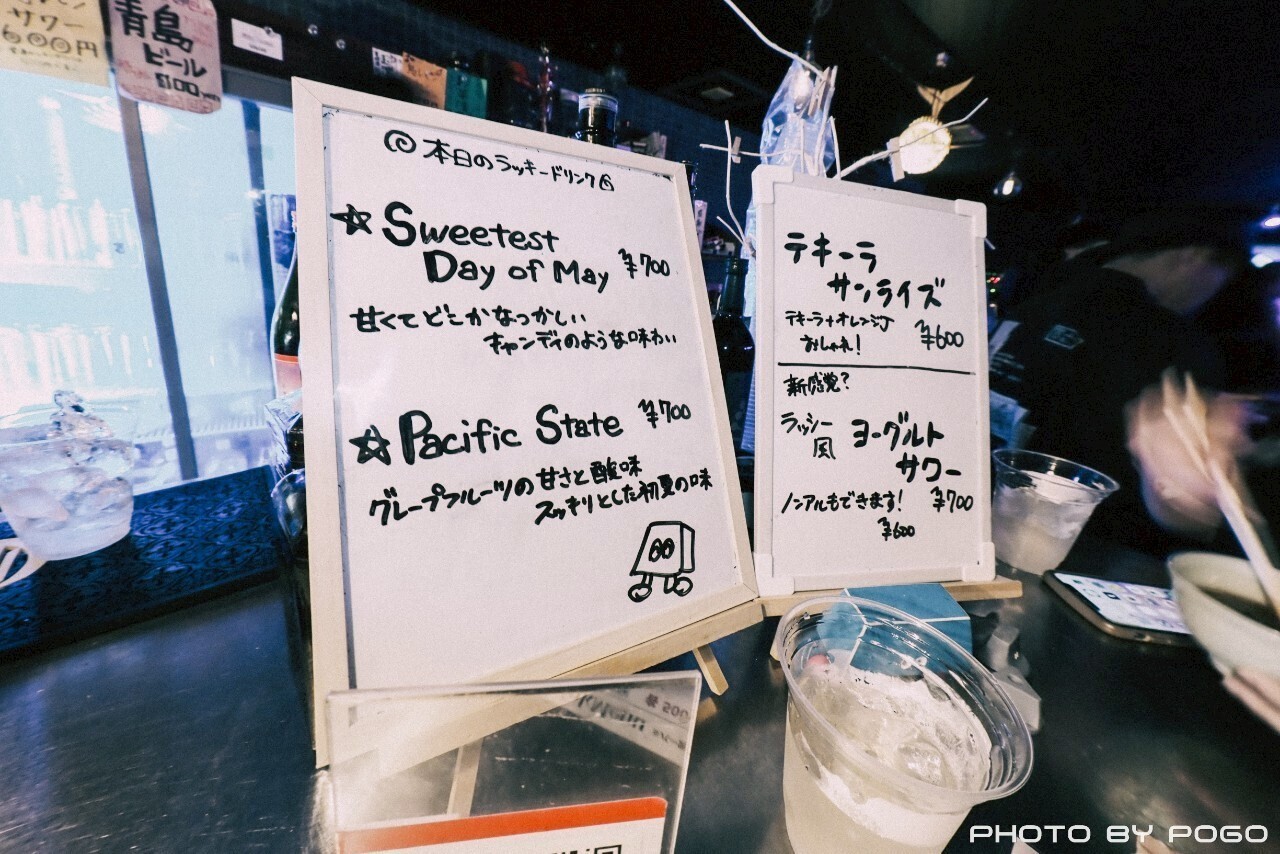 サワー
600円
青島
ビール
本日のラッキードリンク
☆ Sweetest
Day of May ¥700
甘くてどこかなつかしい
キャンディのような味わい
☆ Pacific State ¥700
グレープフルーツの甘さと酸味
スッキリとした初夏の味
テキーラ
サンライズ
テキーラ+オレンジJ
おしゃれ! ¥600
新感覚?
ラッシー風
ヨーグルト
サワー
ノンアルもできます! ¥700
¥600
PHOTO BY POGO